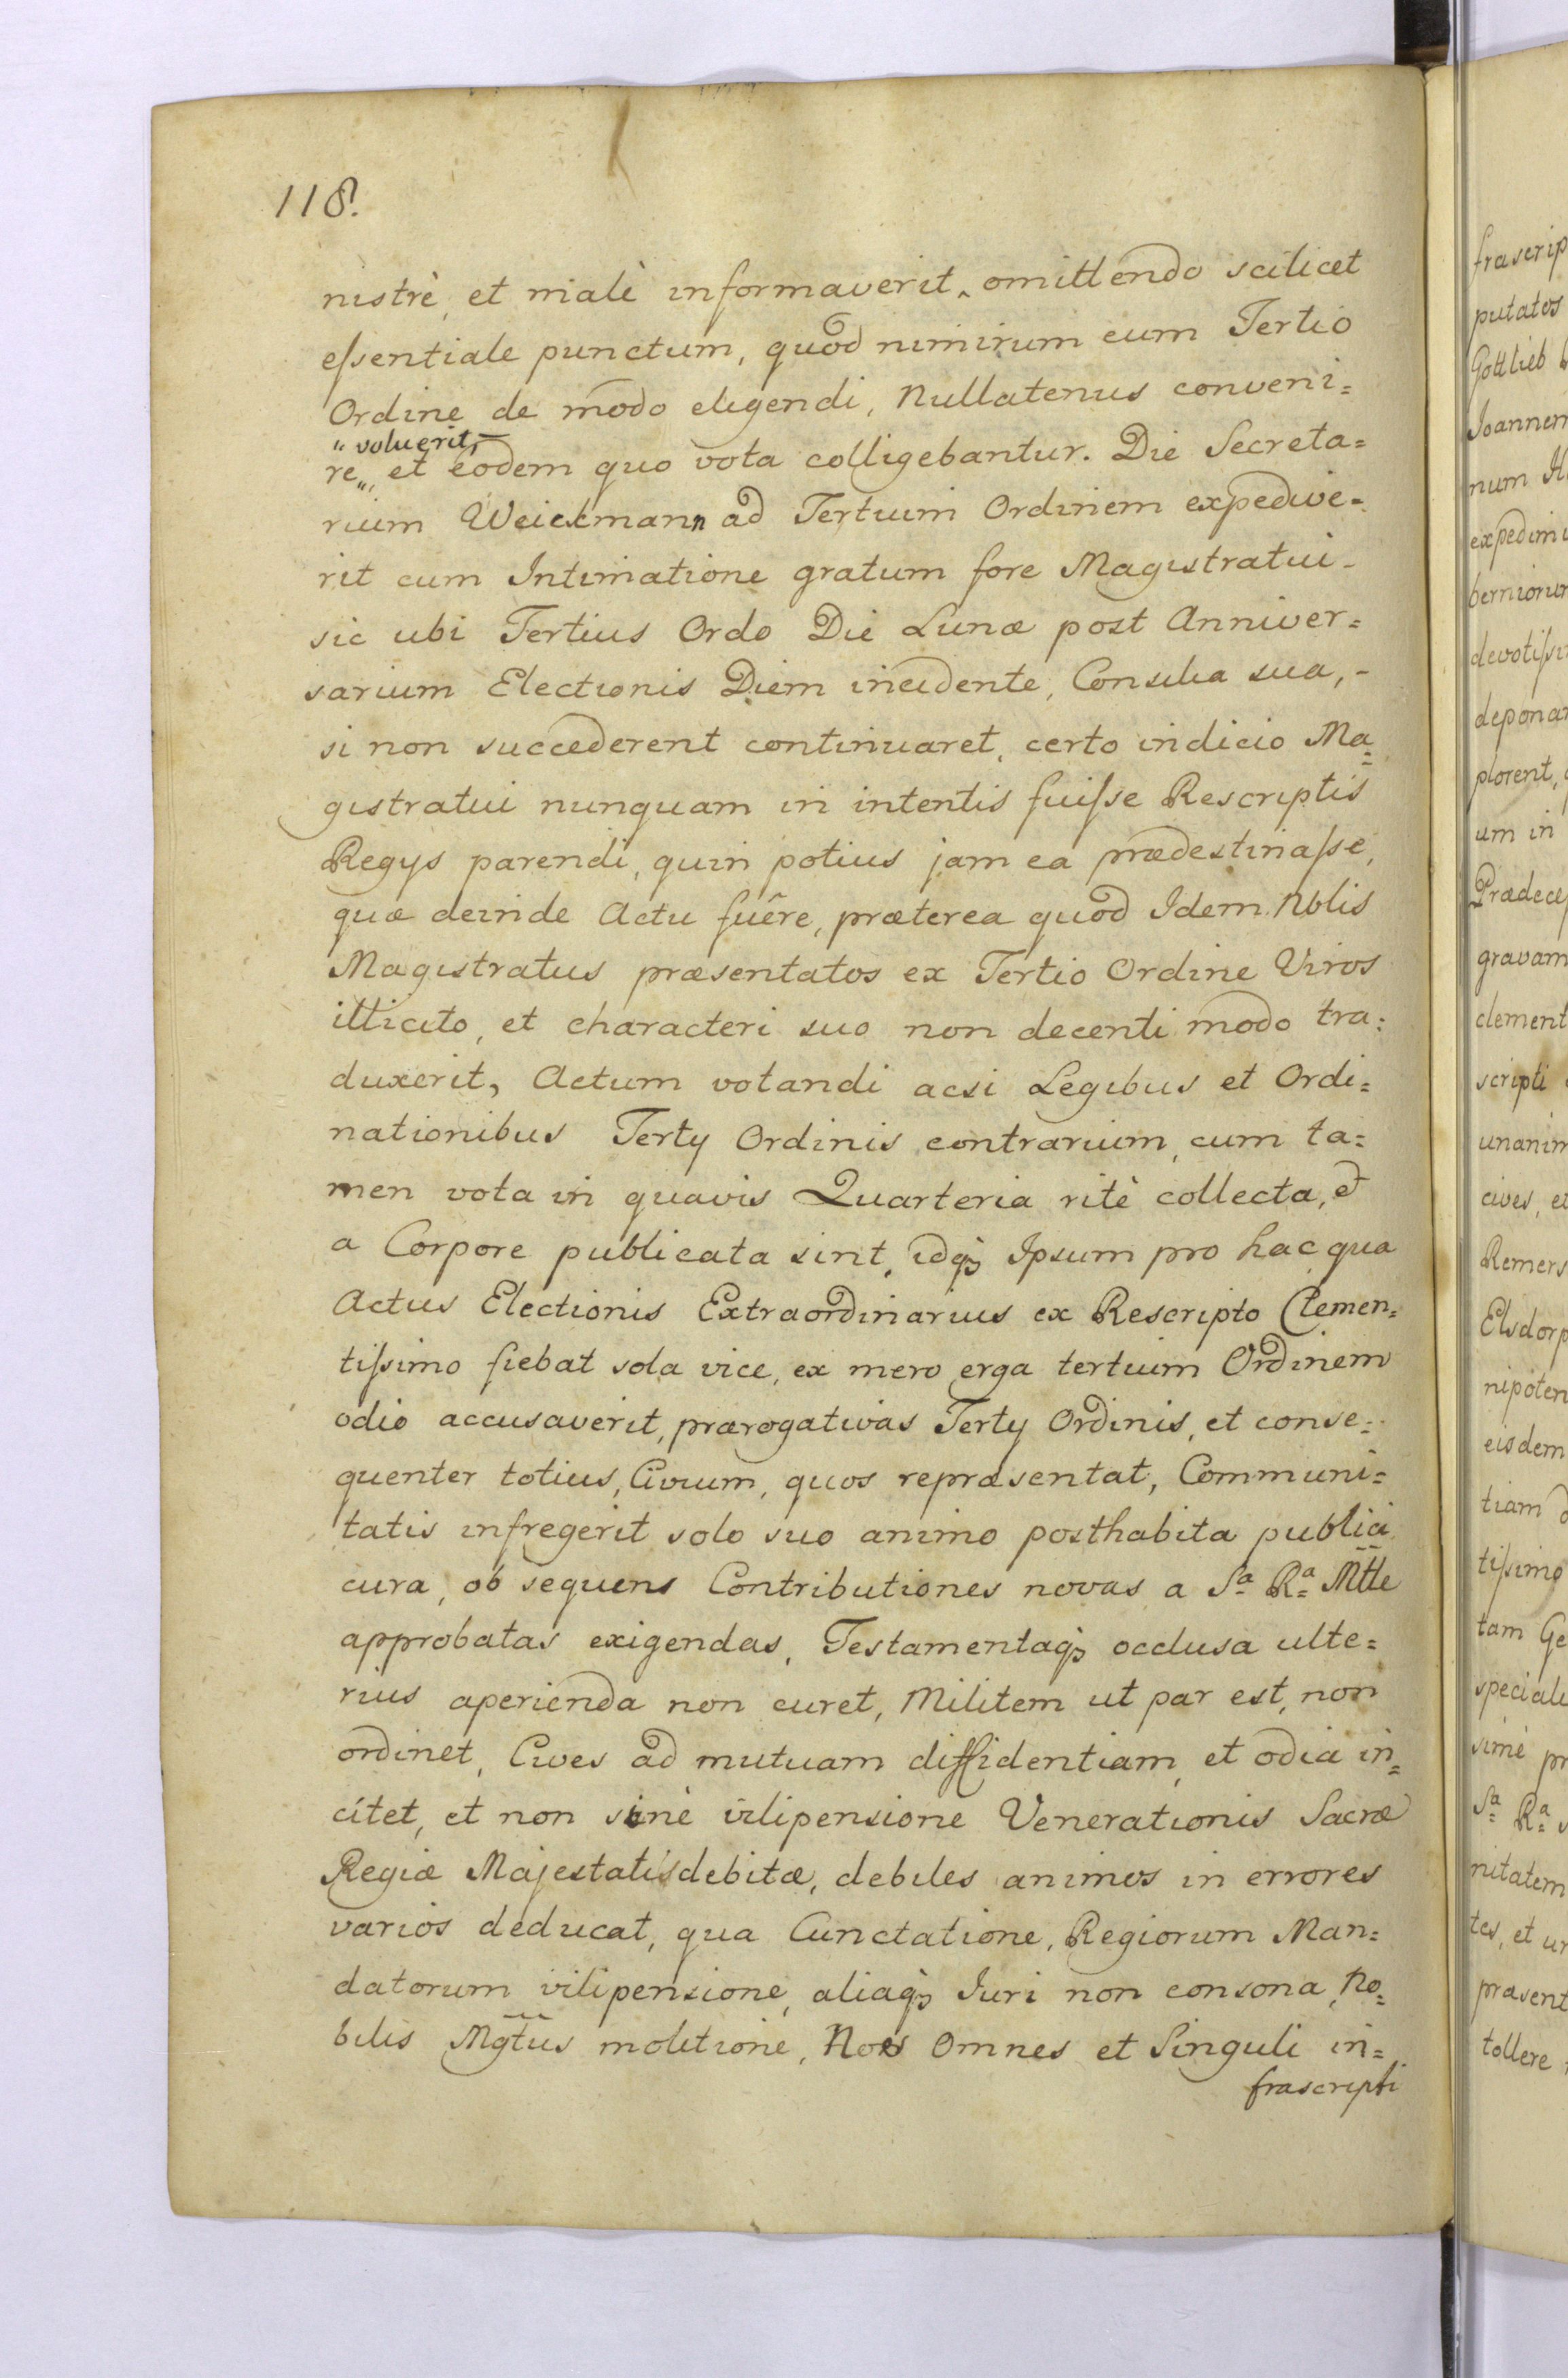 118.
nistrè, et malè informaverit, omittendo scilicet
eſsentiale punctum, quod nimirum cum Tertio
Ordine de modo eligendi, Nullatenus conveni=
„voluerit,
re„, et eodem quo vota colligebantur. Die Secreta=
rium Weickmann ad Tertium Ordinem expedive=
rit cum Intimatione gratum fore Magistratui
sic ubi Tertius Ordo Die Lunæ post Anniver=
sarium Electionis Diem incidente, Consilia sua, -
si non succederent continuaret, certo indicio Ma=
gistratui nunquam in intentis fuiſse Rescriptis
Regÿs parendi, quin potius jam ea prædestinaſse,
quæ deinde Actu fuêre, præterea quod Idem Nblis
Magistratus præsentatos ex Tertio Ordine Viros
illicito, et characteri suo non decenti modo tra=
duxerit, Actum votandi acsi Legibus et Ordi=
nationibus Tertÿ Ordinis contrarium, cum ta=
men vota in quavis Quarteria ritè collecta, et
a Corpore publicata sint, idq; Ipsum pro hac qua
Actus Electionis Extraordinarius ex Rescripto Clemen=
tiſsimo fiebat sola vice, ex mero erga tertium Ordinem
odio accusaverit, prærogativas Tertÿ Ordinis, et conse=
quenter totius, Civium, quos repræsentat, Communi=
tatis infregerit solo suo animo posthabita publici
cura, ob sequens Contributiones novas a Sa Ra Mtte
approbatas exigendas, Testamentaq; occlusa ulte=
rius aperienda non curet, Militem ut par est, non
ordinet, Cives ad mutuam diffidentiam, et odia in=
citet, et non sine vilipensione Venerationis Sacræ
Regiæ Majestatis debitæ, debiles animos in errores
varios deducat, qua Cunctatione, Regiorum Man=
datorum vilipensione, aliaq; Iuri non consona, No=
bilis Mgtus molitione, Nos Omnes et Singuli in=
frascripti
frascrip
putatos
Gottlieb
Joannem
num
expedimu
berniorum
devotiſsi
deponan
plorent,
um in
Prædece
gravam
clement
scripti
unanim
cives, et
Remers
Elsdorp
nipoten
eisdem
tiam
tiſsimo
tam Ge
speciali
simè pr
Sa Ra
nitatem
tes, et un
præsent
tollere